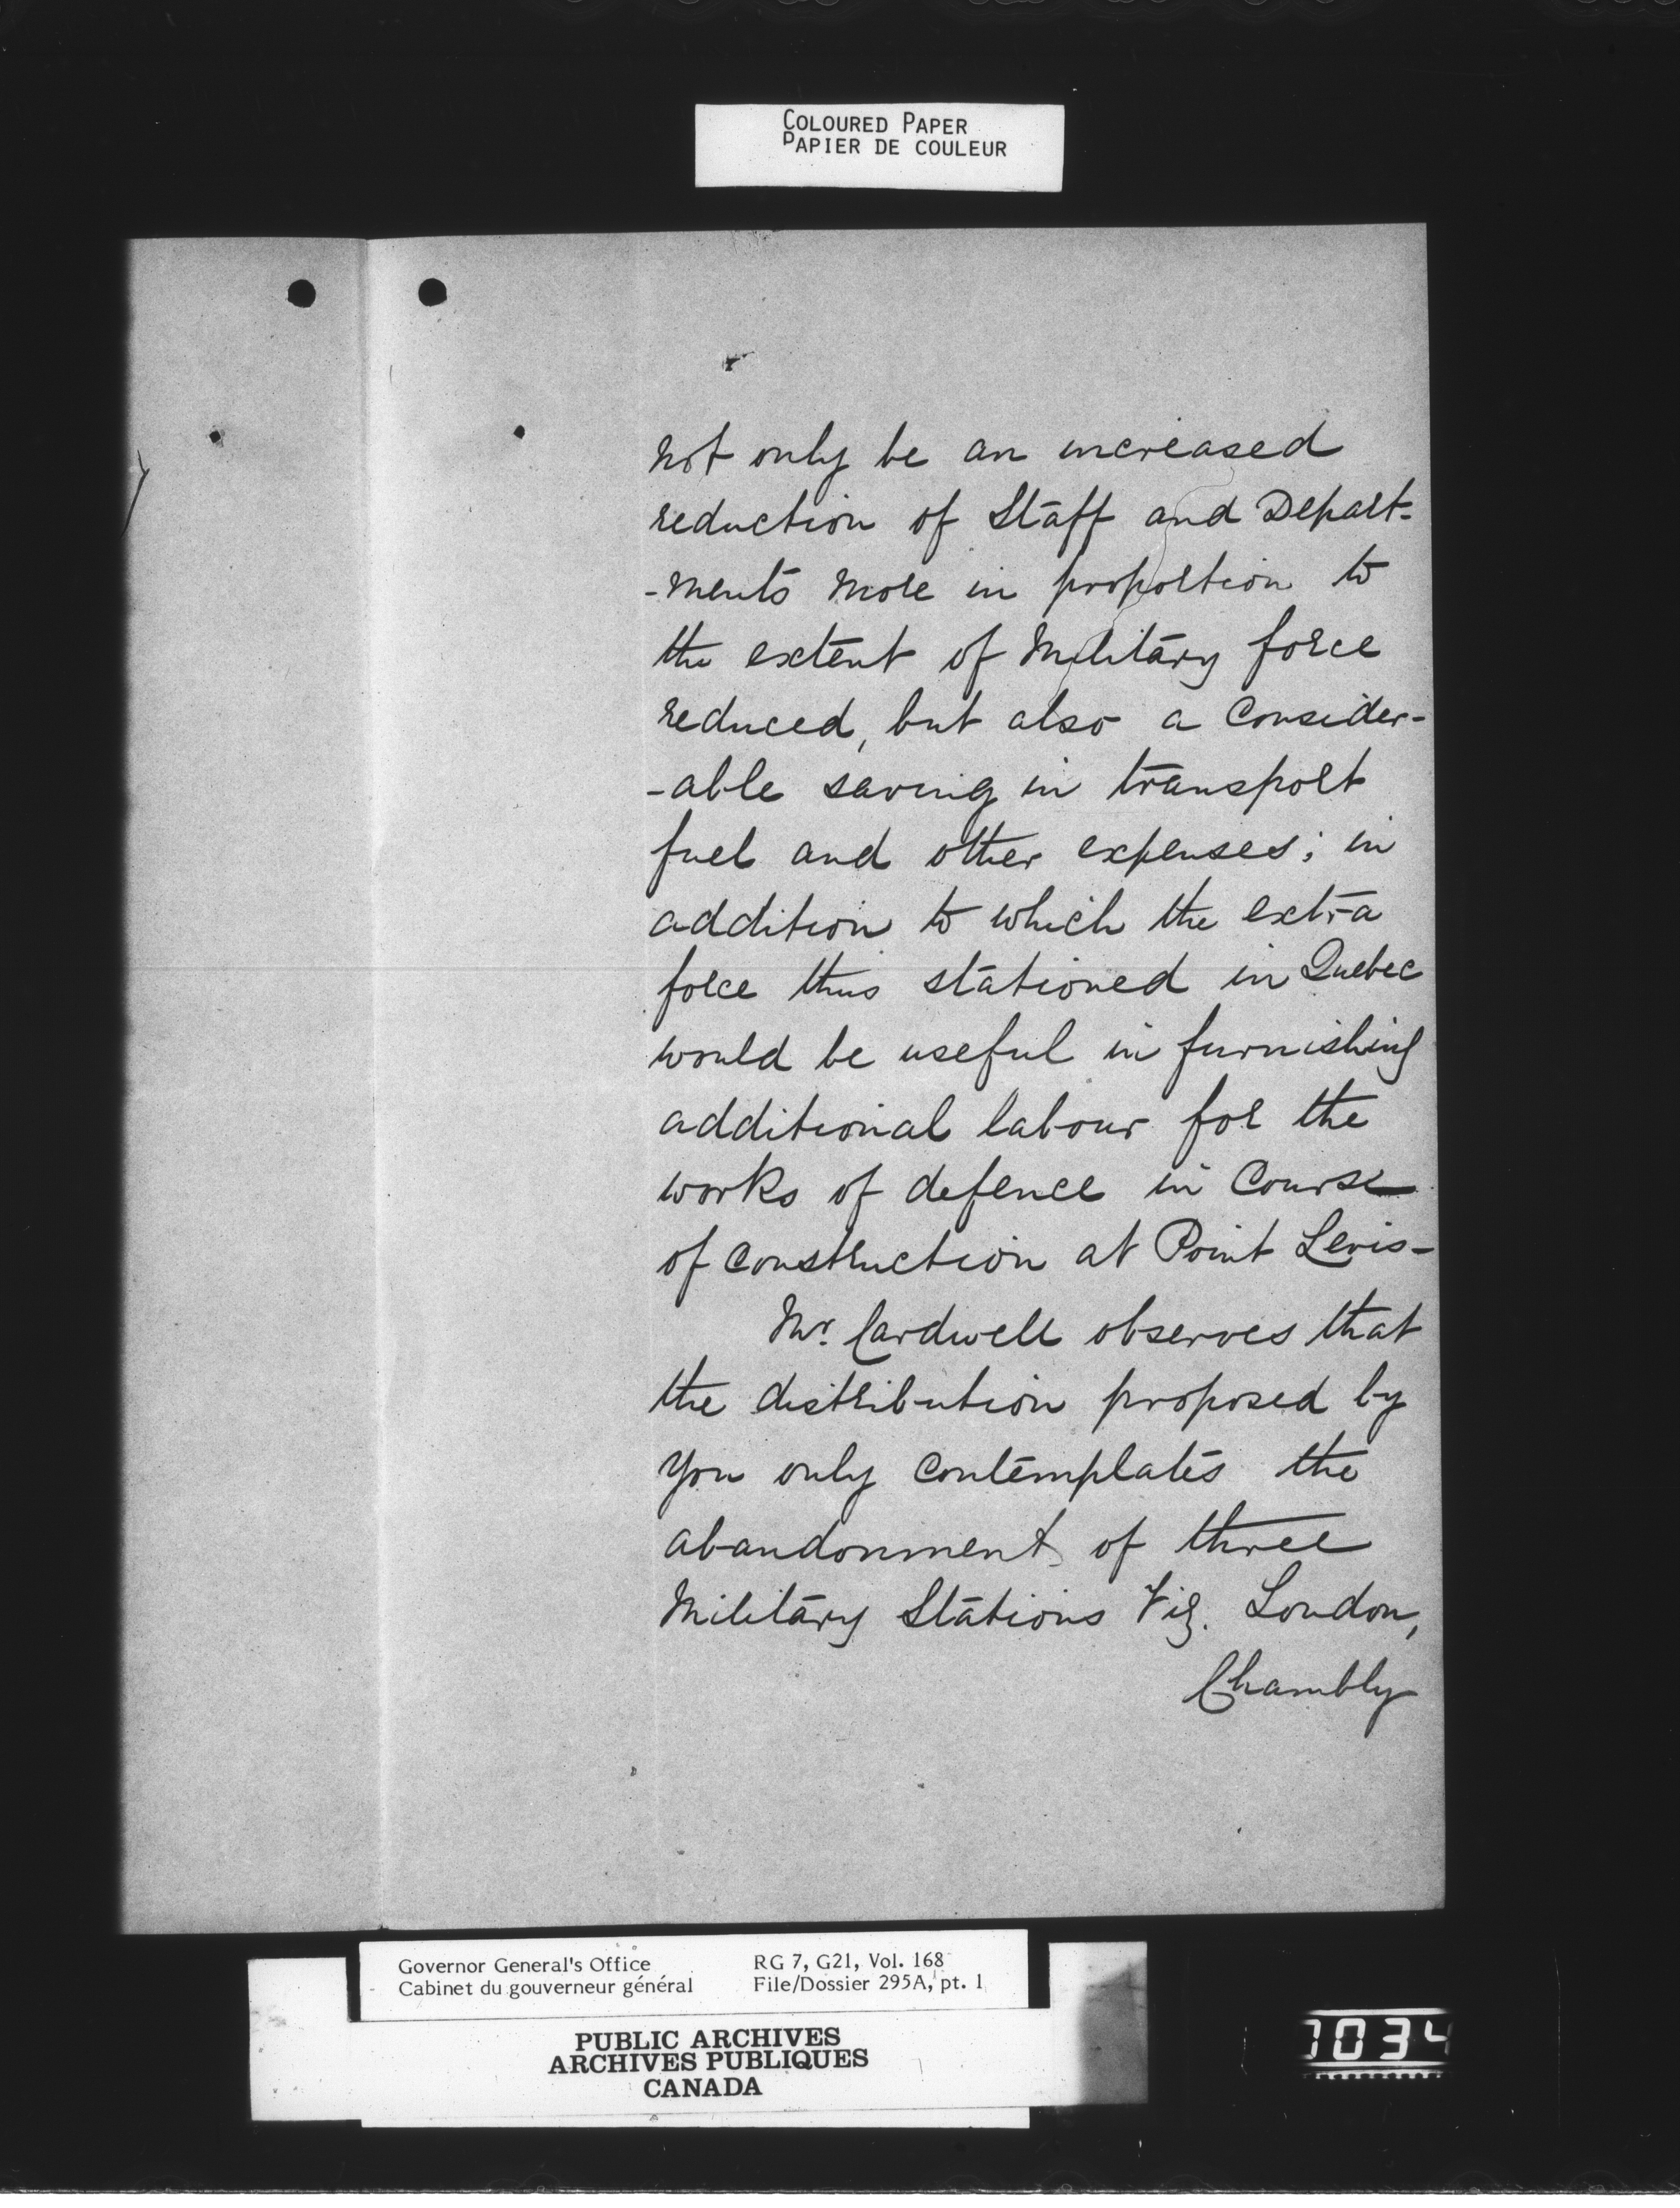 COLOURED PAPER
PAPIER DE COULEUR
not only be an increased
reduction of Staff and Depart-
-ments more in proportion to
the extent of Military force
reduced, but also a Consider-
-able saving in transport
fuel and other expenses; in
addition to which the extra
force thus stationed in Quebec
would be useful in furnishing
additional labour for the
works of defence in Course
of Construction at Point Levis-
Mr. Cardwell observes that
the distribution proposed by
you only Contemplates the
abandonment of three
Military Stations Viz. London,
Chambly
Governor General's Office
Cabinet du gouverneur général
RG 7, G21, Vol. 168
File/Dossier 295A, pt. 1
PUBLIC ARCHIVES
ARCHIVES PUBLIQUES
CANADA
1034